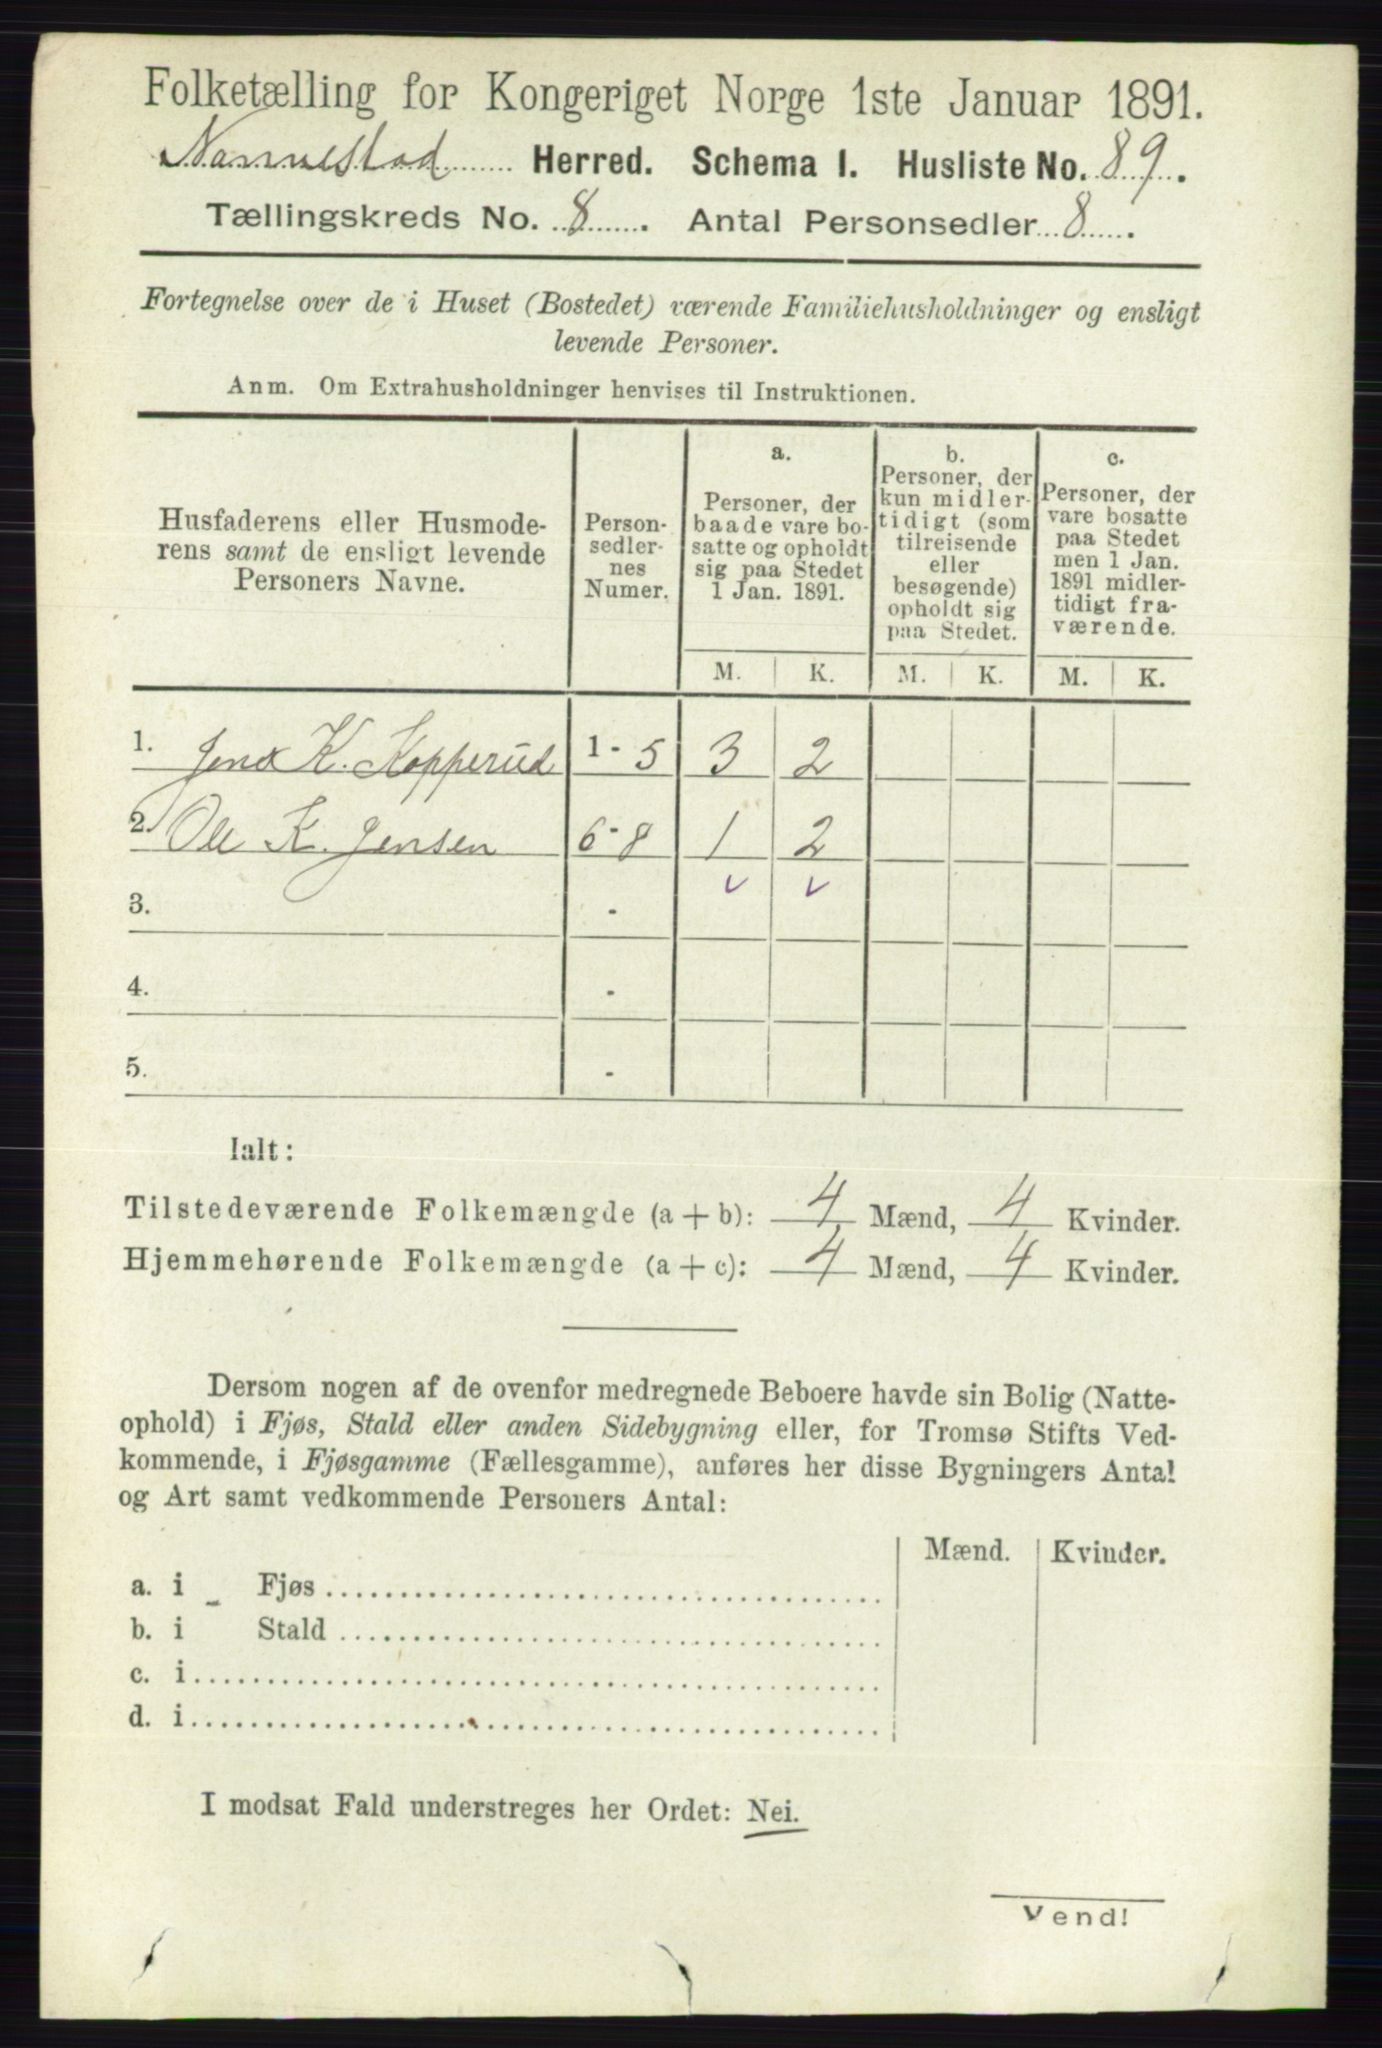 Folketælling for Kongeriget Norge 1ste Januar 1891.
Nannestad Herred. Schema I. Husliste No. 89.
Tællingskreds No. 8. Antal Personsedler 8.
Fortegnelse over de i Huset (Bostedet) værende Familiehusholdninger og ensligt
levende Personer.
Anm. Om Extrahusholdninger henvises til Instruktionen.
Husfaderens eller Husmode-
rens samt de ensligt levende
Personers Navne.
Person-
sedler-
nes
Numer.
a.
Personer, der
baade vare bo-
satte og opholdt
sig paa Stedet
1 Jan. 1891.
b.
Personer, der
kun midler-
tidigt (som
tilreisende
eller
besøgende)
opholdt sig
paa Stedet.
c.
Personer, der
vare bosatte
paa Stedet
men 1 Jan.
1891 midler-
tidigt fra-
værende.
M. K. M. K. M. K.
1. K. Kopperud 1 - 5 3 2
2. Ole K. Jensen 6 - 8 1 2
3. -
4. -
5. -
Ialt:
Tilstedeværende Folkemængde (a + b): 4 Mænd, 4 Kvinder.
Hjemmehørende Folkemængde (a + c): 4 Mænd, 4 Kvinder.
Dersom nogen af de ovenfor medregnede Beboere havde sin Bolig (Natte-
ophold) i Fjøs, Stald eller anden Sidebygning eller, for Tromsø Stifts Ved-
kommende, i Fjøsgamme (Fællesgamme), anføres her disse Bygningers Antal
og Art samt vedkommende Personers Antal:
Mænd. Kvinder.
a. i - Fjøs
b. i Stald
c. i
d. i
I modsat Fald understreges her Ordet: Nei.
Vend!